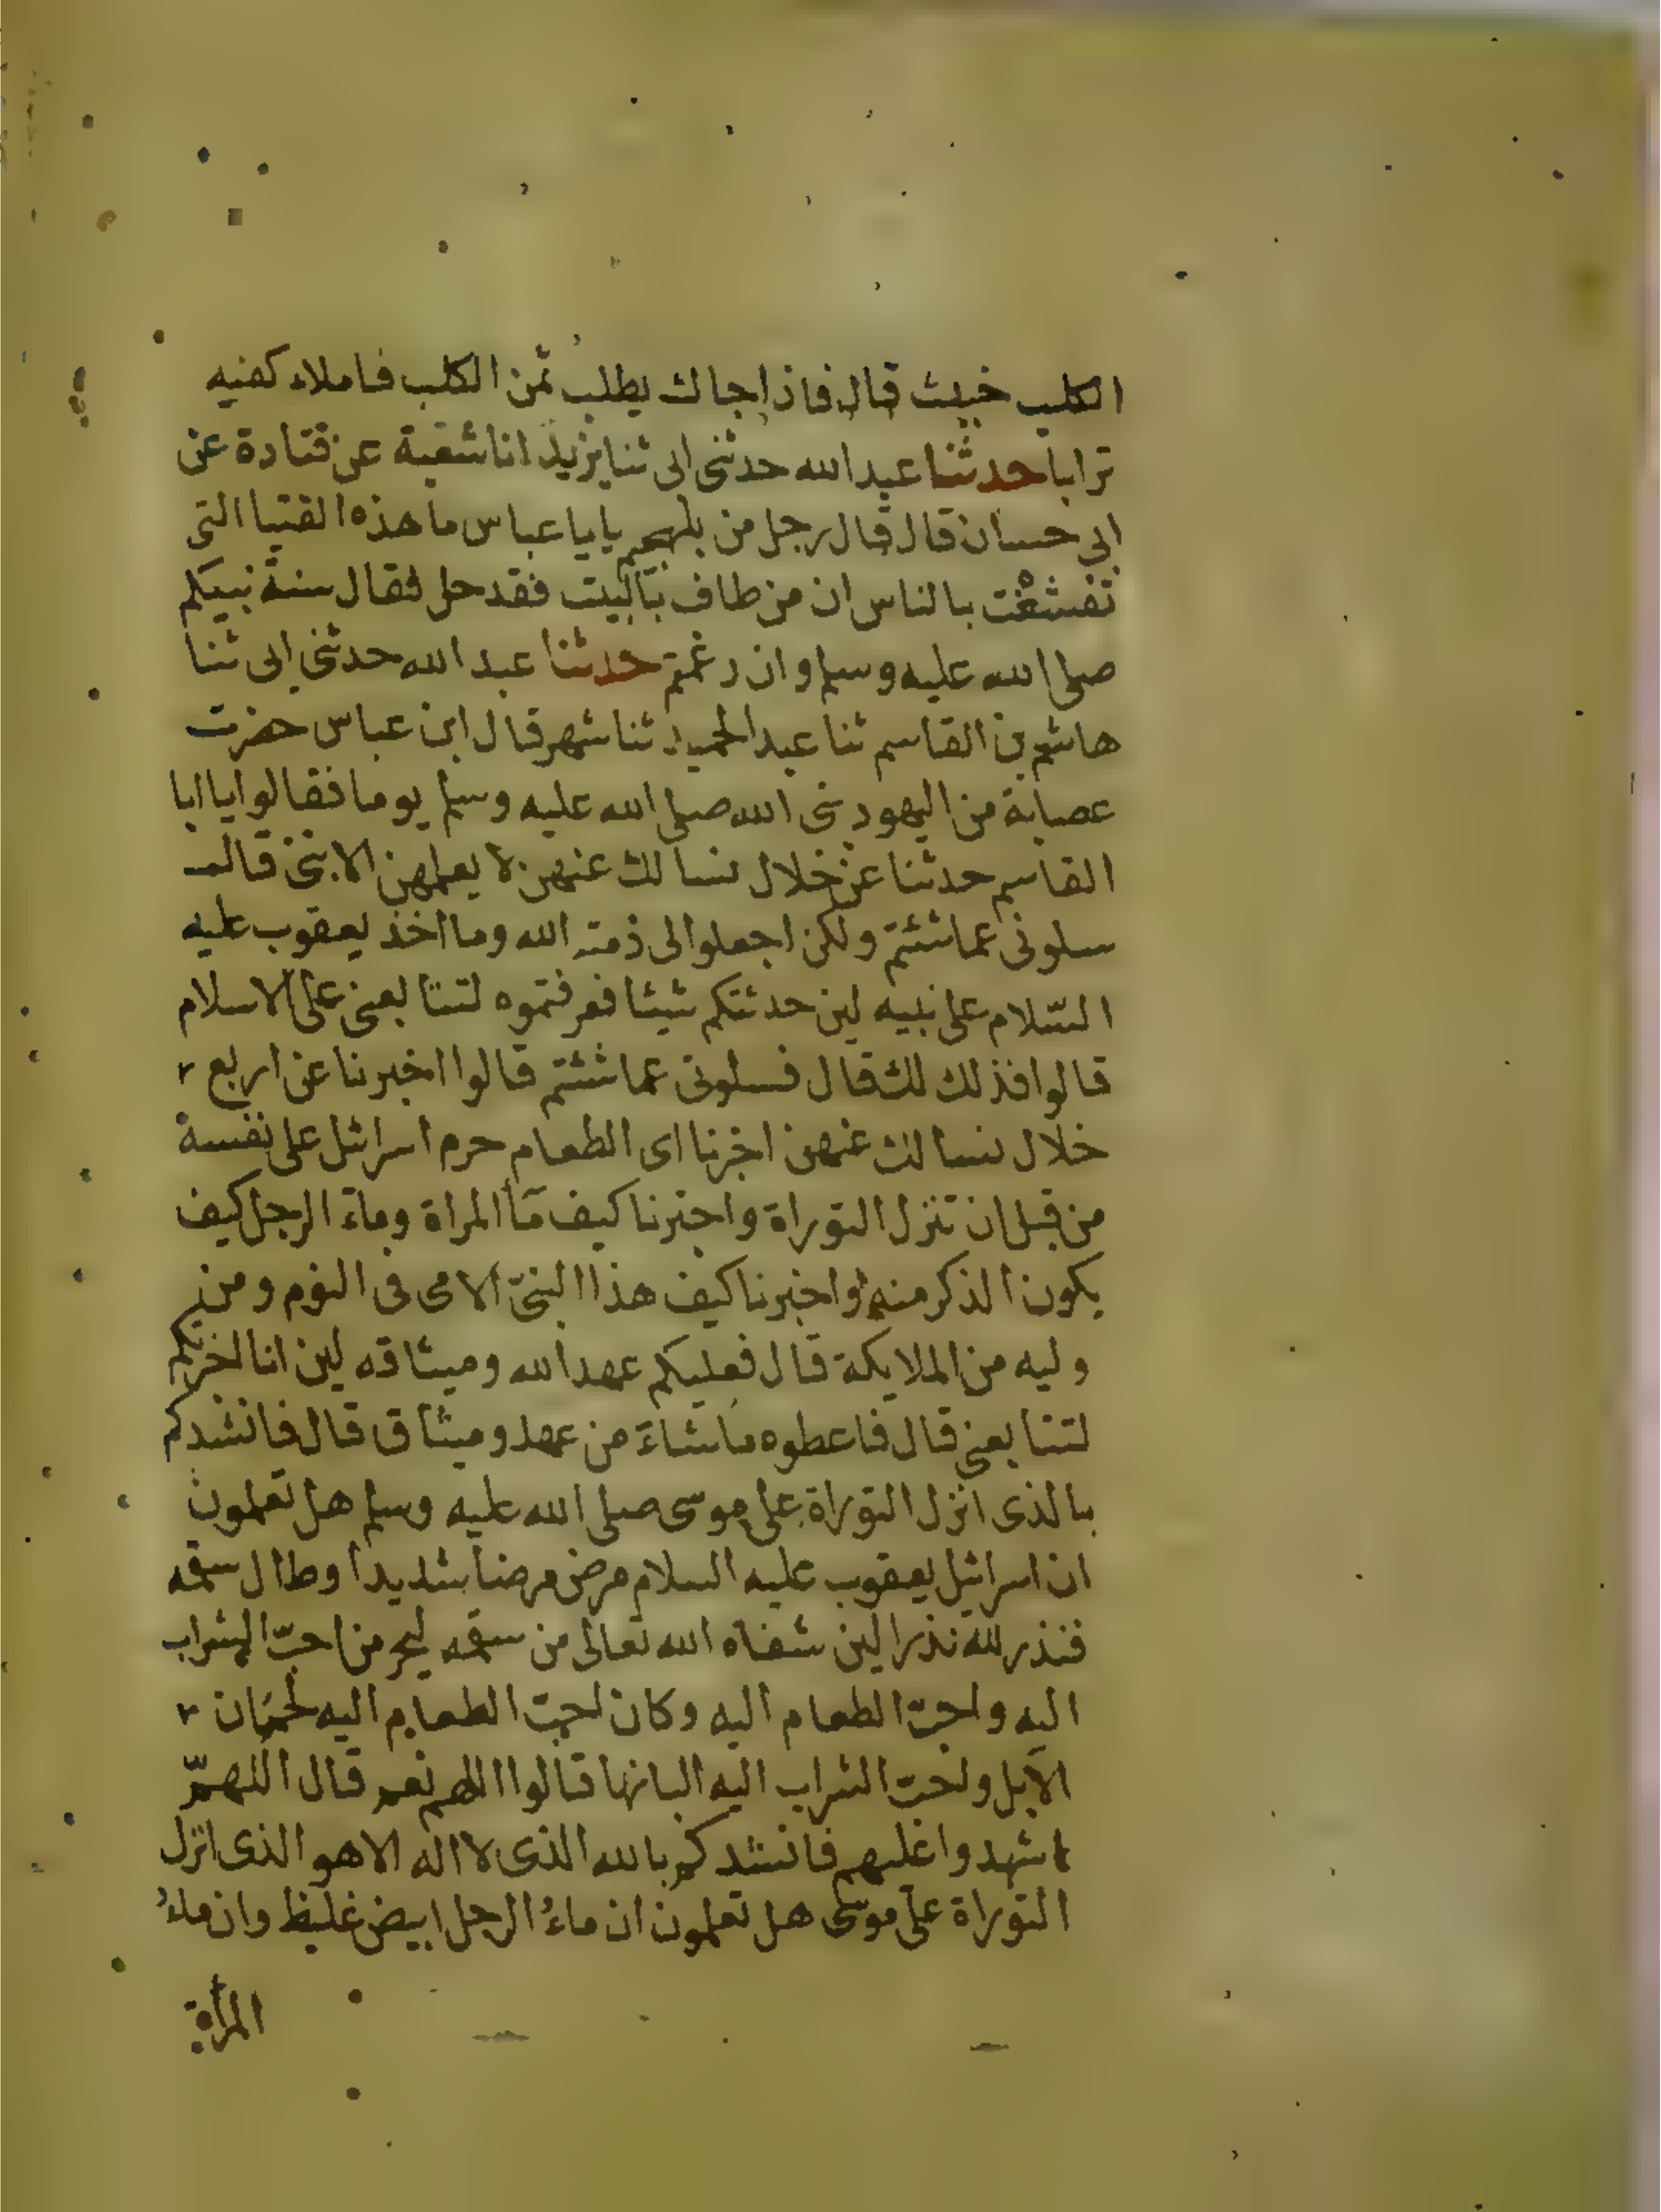 الكلب خبيث قال فاذا جاك يطلب ثمن الكلب فاملاء كفيه
ترابا حدثنا عبد الله حدثنى ابى ثنا يزيد انا شعبة عن قتادة عن
ابى حسان قال قال رجل من بلهجيم يابا عباس ما هذه الفتيا التى
تفشغت بالناس ان من طاف بالبيت فقد حل فقال سنة نبيكم
صلى الله عليه وسلم وان رغمتم حدثنا عبد الله حدثنى ابى ثنا
هاشم بن القاسم ثنا عبد الحميد ثنا شهر قال ابن عباس حضرت
عصابة من اليهود نبى الله صلى الله عليه وسلم يوما فقالوا يا ابا
القاسم حدثنا عن خلال نسالك عنهن لا يعلمهن الا نبى قال
سلونى عما شئتم ولكن اجعلوا لى ذمة الله وما اخذ يعقوب عليه
السّلام على نبيه لين حدثتكم شيئا فعرفتموه لتتابعنى على الاسلام
قالوا فذلك لك قال فسلونى عما شئتم قالوا اخبرنا عن اربع
خلال نسالك عنهن اخبرنا اى الطعام حرم اسرائل على نفسه
من قبل ان تنزل التوراة واخبرنا كيف مآ المراة وماء الرجل كيف
يكون الذكر منه واخبرنا كيف هذا النبىّ الامى فى النوم ومن
وليه من الملايكة قال فعليكم عهد الله وميثاقه لين انا اخبرتكم
لتتابعنى قال فاعطوه ما شاء من عهد وميثاق قال فانشدكم
بالذى انزل التوراة على موسى صلى الله عليه وسلم هل تعلمون
ان اسرائيل يعقوب عليه السلام مرض مرضا شديدا وطال سقمه
فنذر لله نذرا لين شفاه الله تعالى من سقمه ليحرمن احبّ الشراب
اليه واحبّ الطعام اليه وكان احبّ الطعام اليه لحمان
الابل واحبّ الشراب اليه البانها قالوا اللهم نعم قال اللهمّ
اشهد واعليهم فانشدكم بالله الذى لا اله الا هو الذى انزل
التوراة على موسى هل تعلمون ان ماءُ الرجل ابيض غليظ وان ماءُ
المرأة